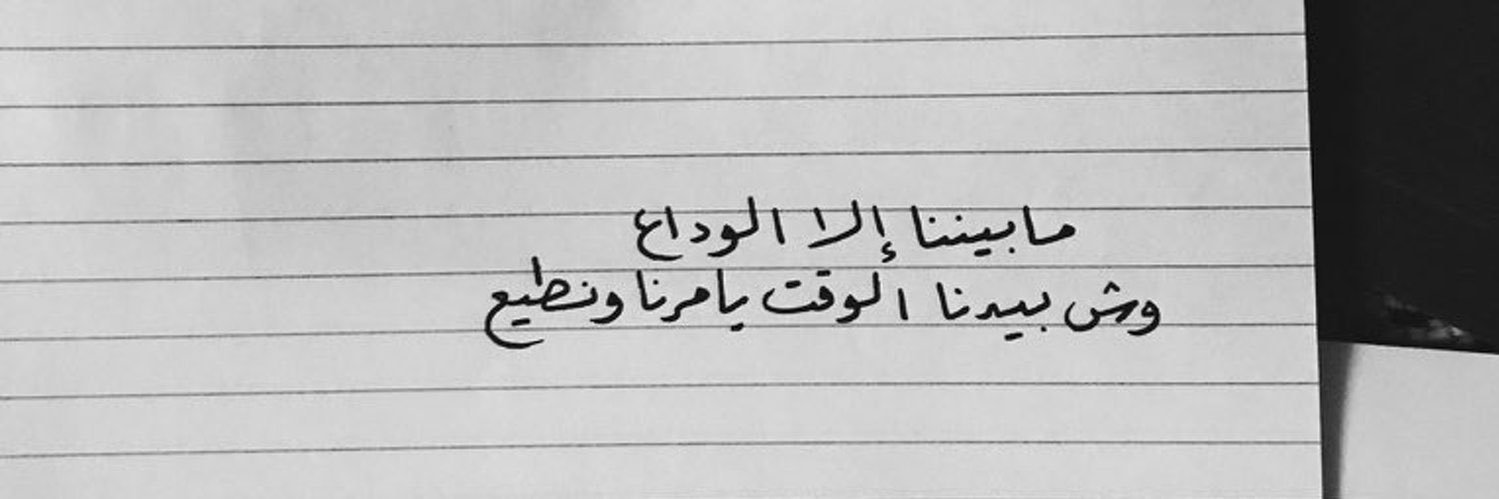 مابيننا إلا الوداع
وش بيدنا الوقت يامرنا ونطيع